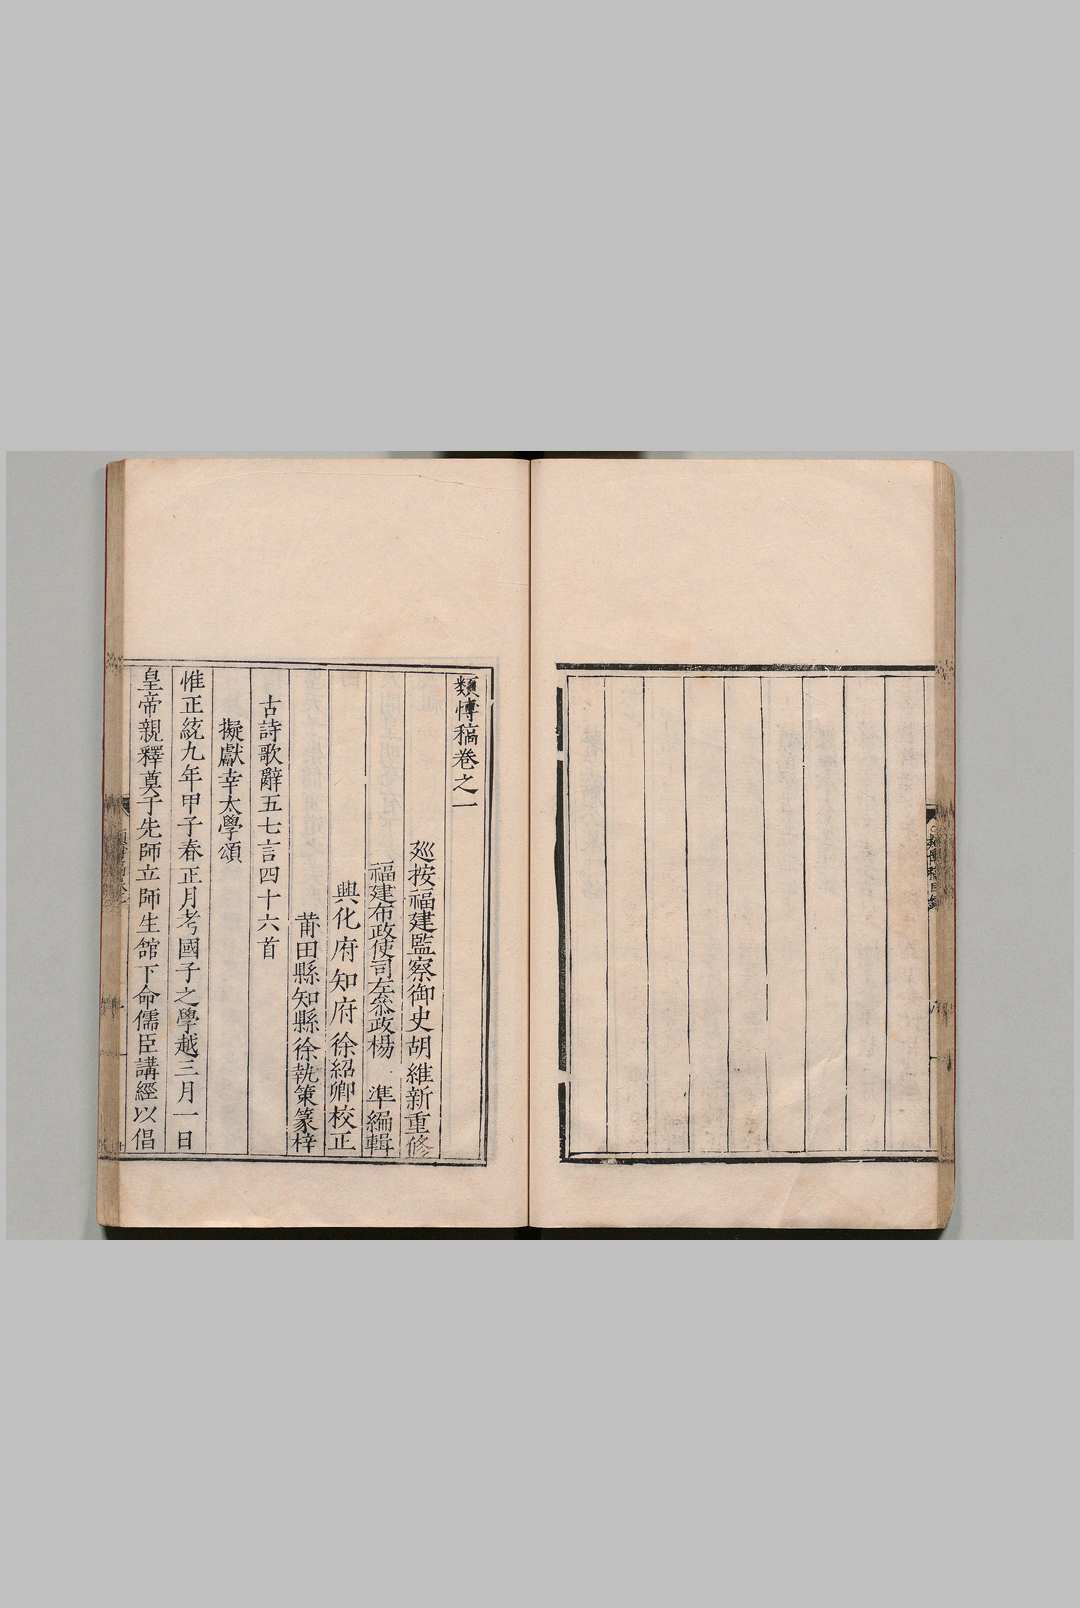 類博稿卷之一
廵按福建監察御史胡維新重修
福建布政使司左叅政楊　準編輯
興化府知府徐紹卿校正
莆田縣知縣徐執策篆梓
古詩歌辭五七言四十六首
擬獻幸太學頌
惟正統九年甲子春正月考國子之學越三月一日
皇帝親釋奠于先師立師生館下命儒臣講經以倡